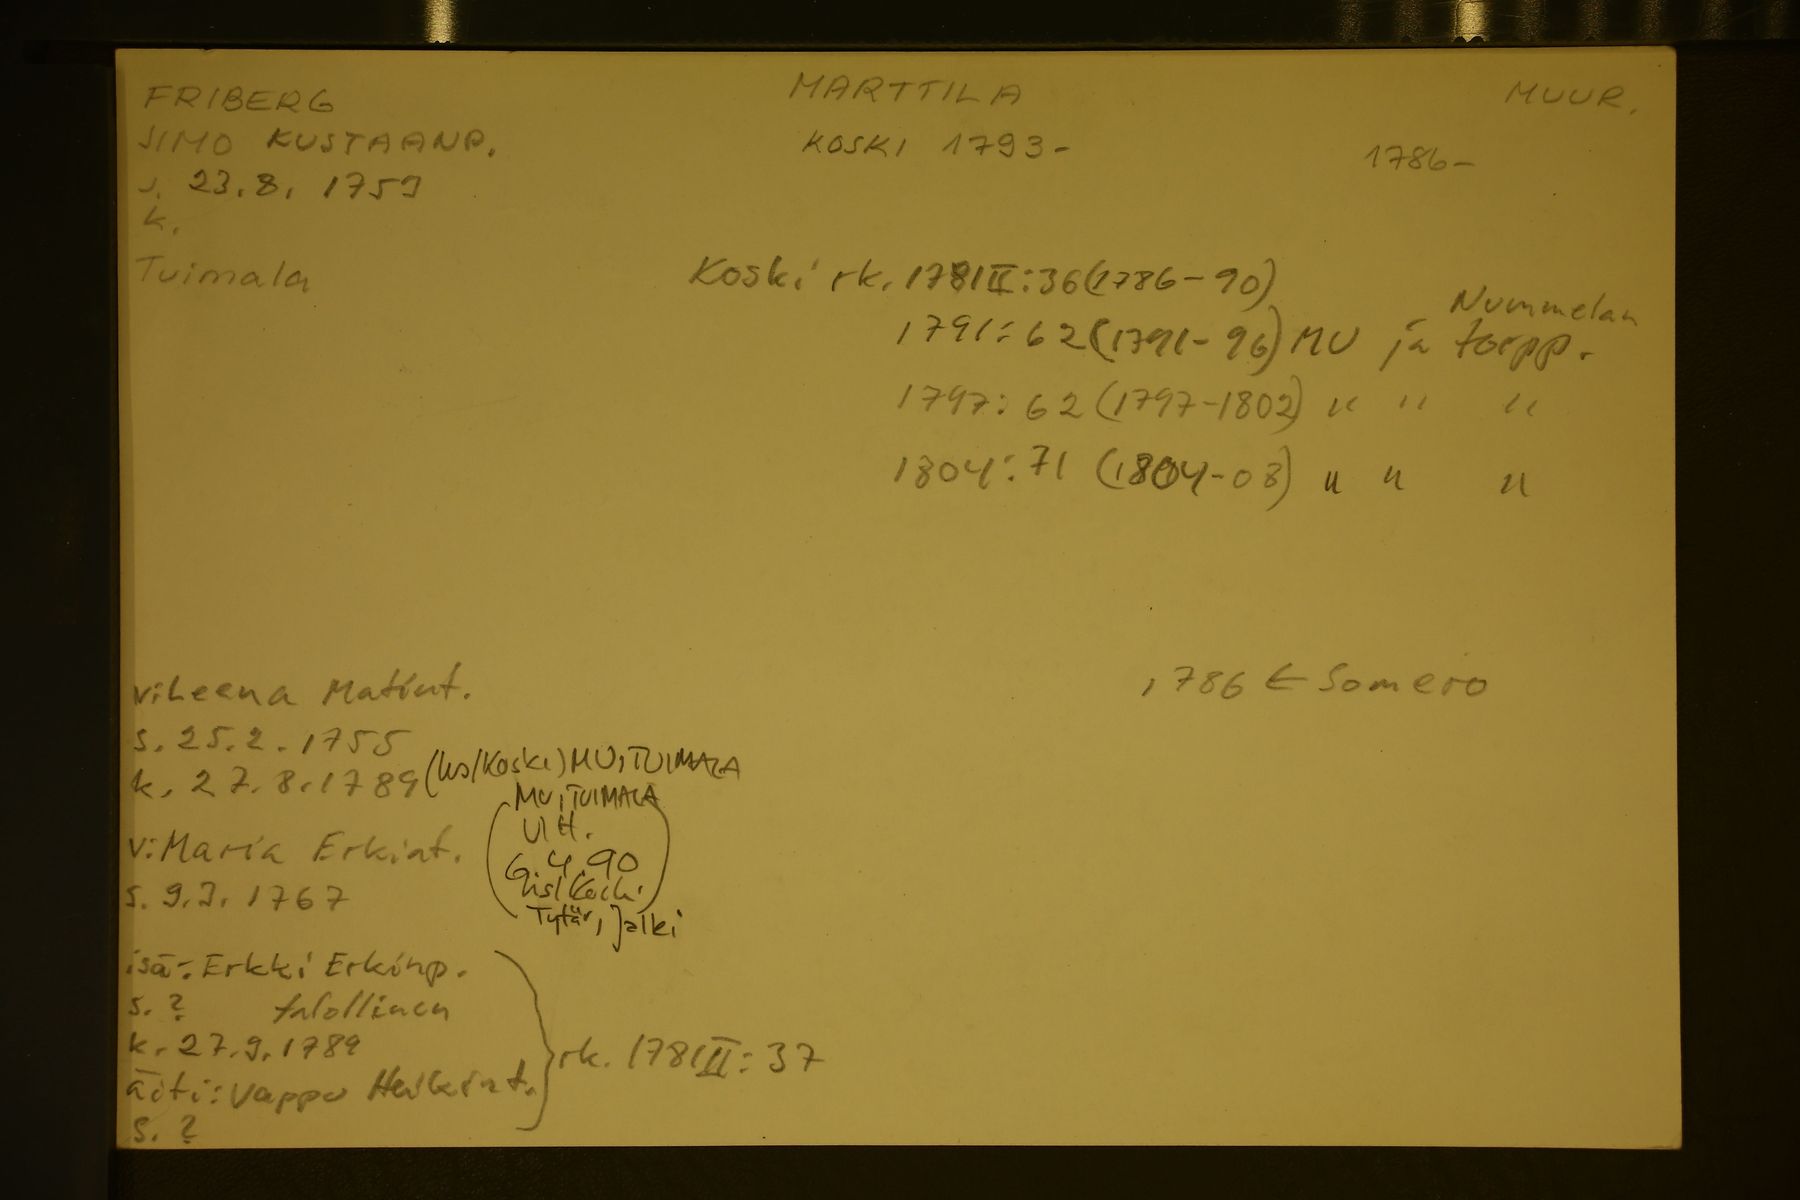 FRIBERG MARTTILA MUUR.
SIMO KUSTAANP. KOSKI 1793- 1786-
s. 23.8. 1759
k.
Tuimala
Koski rk. 1781II:36(1786-90)
Nummelan
1791:62(1791-96) MU ja torpp.
1797:62(1797-1802) " " "
1804:71 (1804-08) " " "
v:Leena Matint. 1786 ← Somero
s. 25.2.1755
k. 27.8.1789 (hs/Koski) MU, TUIMALA
(MU, TUIMALA
VIH.
v:Maria Erkint.
6.4.90
s. 9.3.1767
hs/Koski)
Tytär, jälki
isä: Erkki Erkinp.
s. ? talollinen
k. 27.9.1789
rk. 1781II:37
äiti: Vappu Heikint.
s. ?